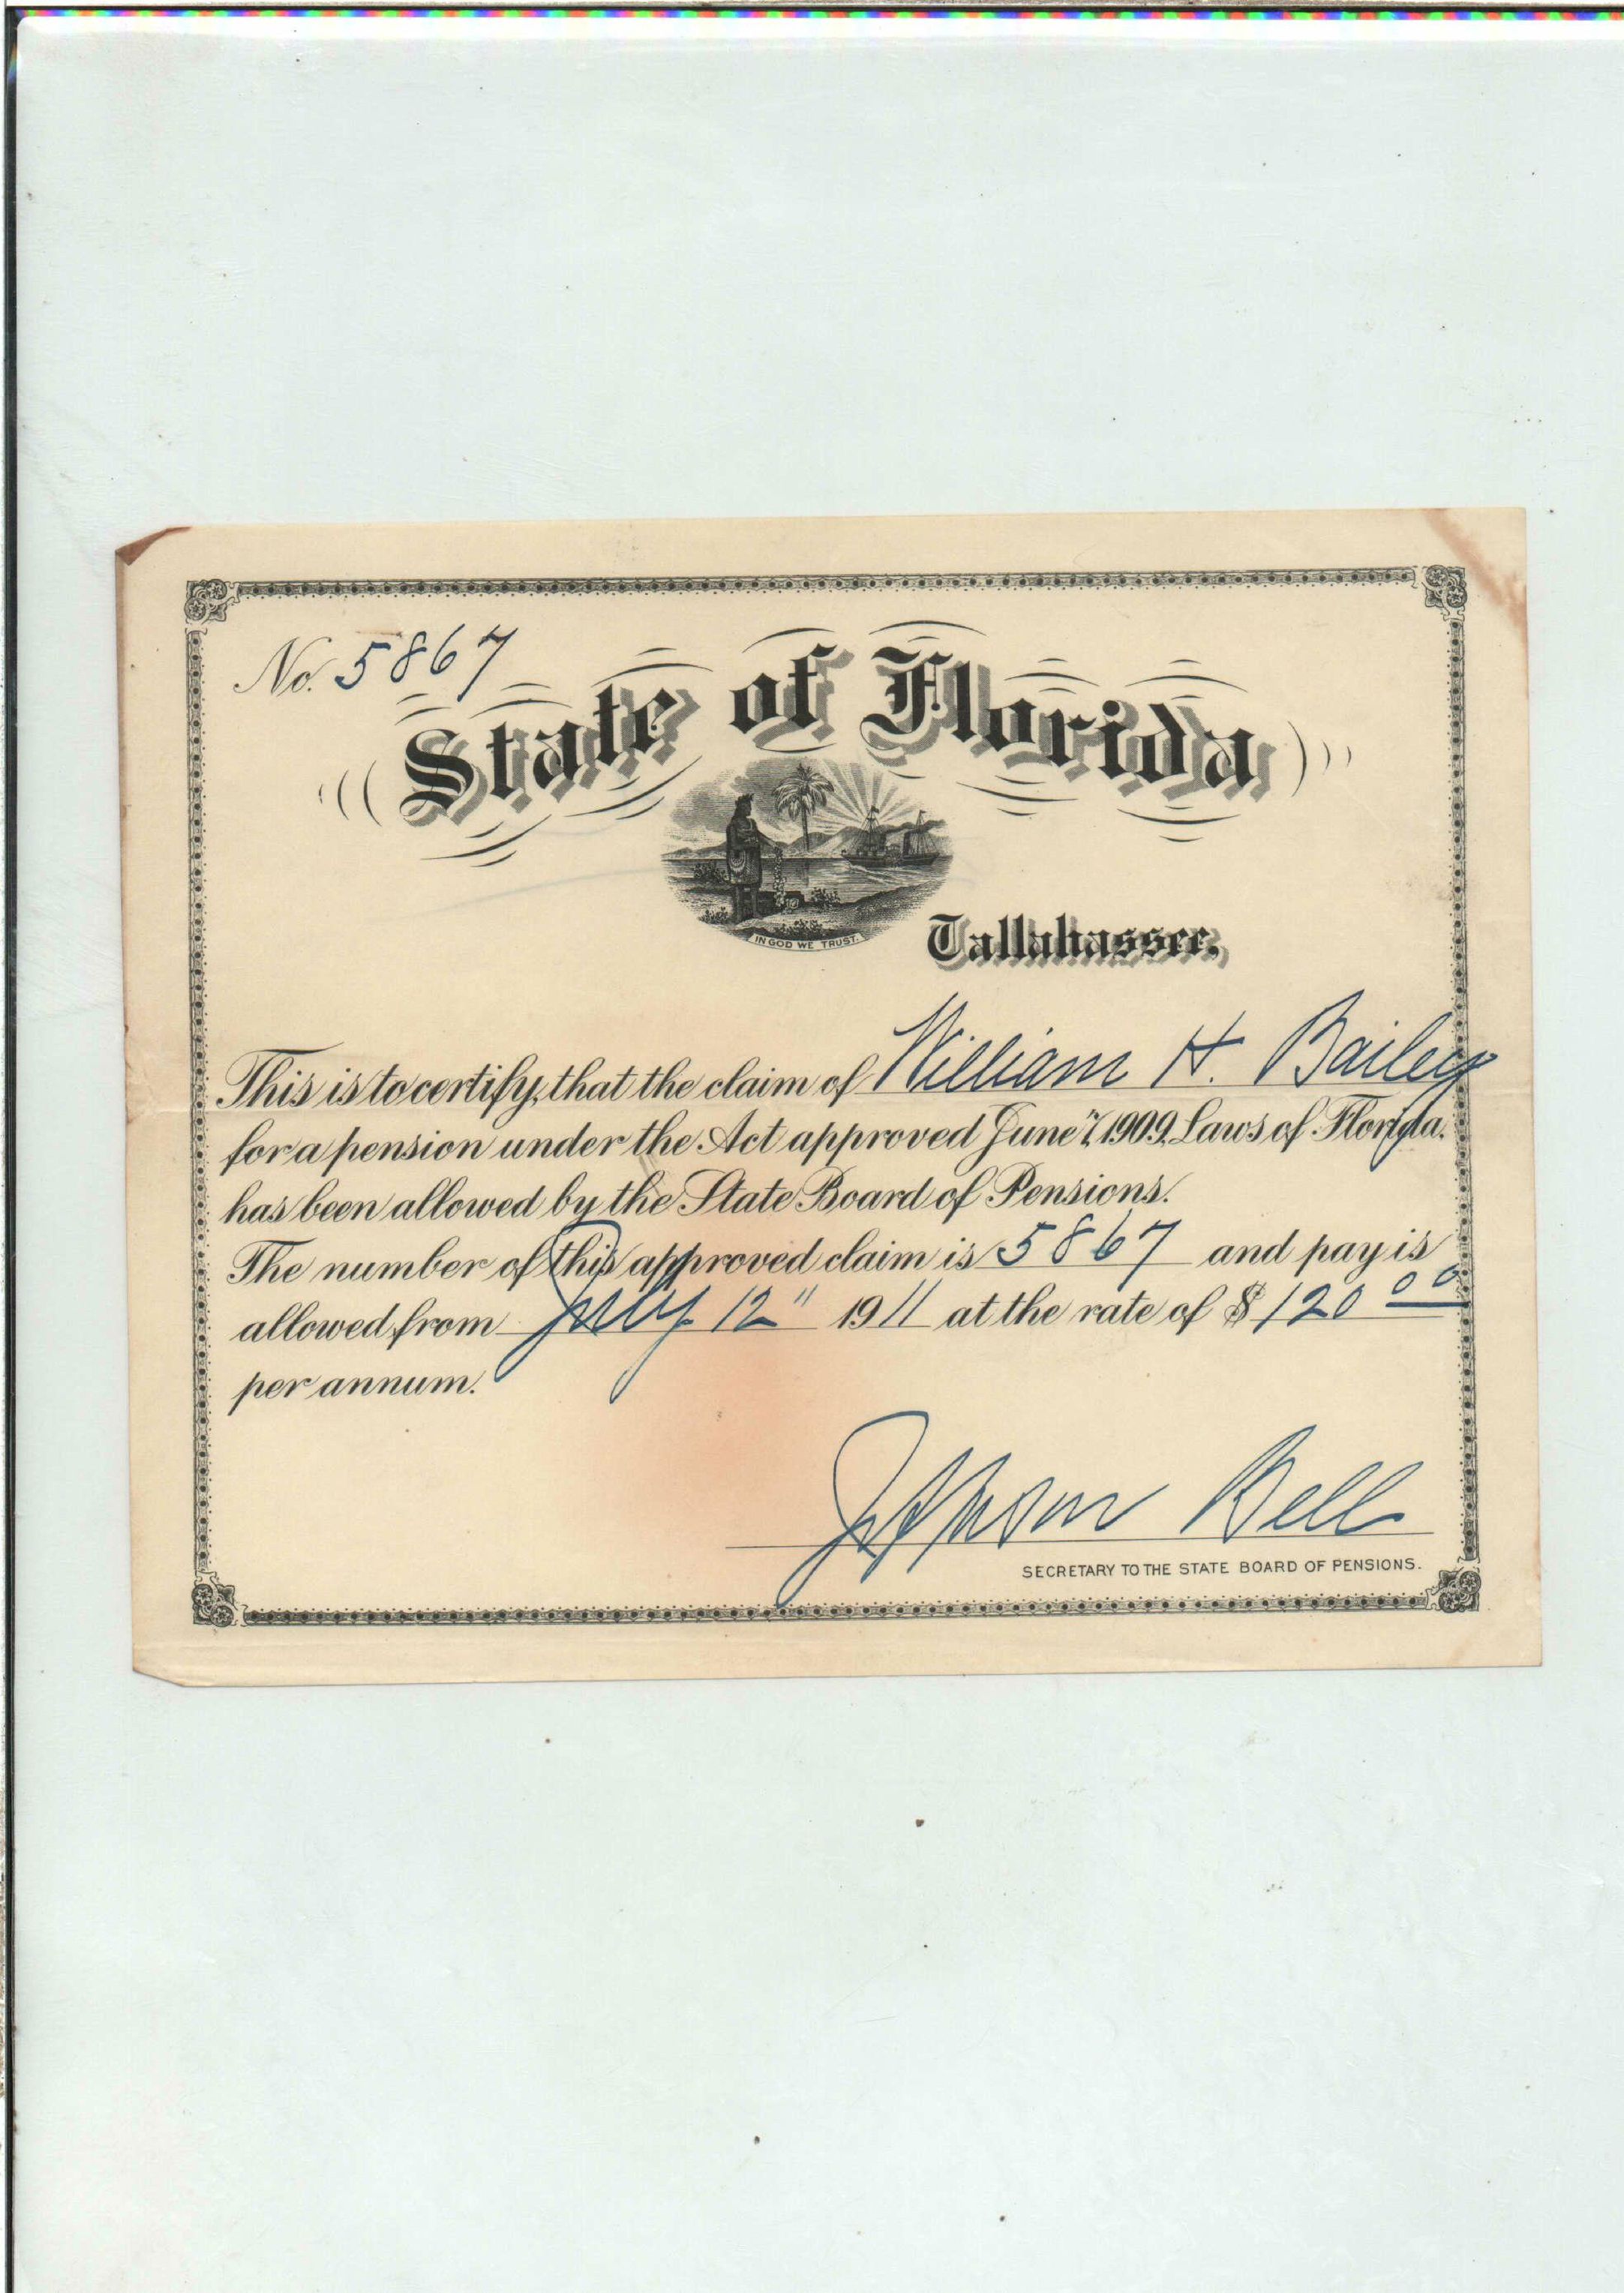 No. 5867
State of Florida
IN GOD WE TRUST.
Tallahassee,
This is to certify, that the claim of William H. Bailey
for a pension under the Act approved June 7, 1909, Laws of Florida.
has been allowed by the State Board of Pensions.
The number of this approved claim is 5867 and pay is
allowed from July 12" 1911 at the rate of $120 00
per annum.
Jefferson Bell
SECRETARY TO THE STATE BOARD OF PENSIONS.